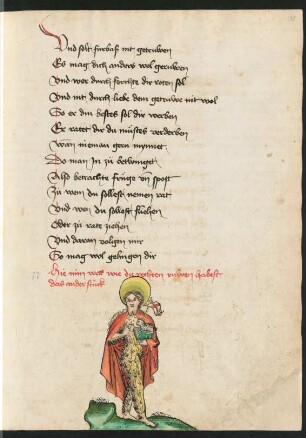 Und solt furbas nit getruwen
Es mag dich anders wol geruwen
Und wer durch forchte dir raten sol
Und nit durch liebe dem getruwe nit wol
So er din bestes sol dir werben
Er ratet dir du mustest verderben
Wan nieman gern
Do man in zu betwinget
Also betrachte fringe vn spott
Zu wem du sollest nemen rat
Und wen du sollest fliehen
Oder zu rate ziehen
Und daran volgen mir
So mag wol gelingen dir
Hie nim war wie du rechten ruwen habest
das ander stuck